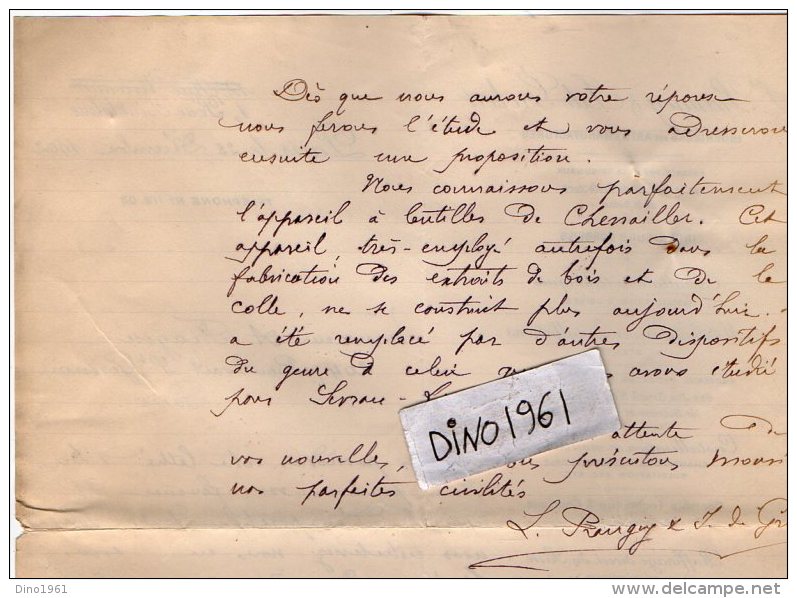 Dès que nous aurons votre réponse
nous ferons l'étude et vous adresserons
ensuite une proposition.
Nous connaissons parfaitement
l'appareil à lentilles de Chenailler. Cet
appareil, très-employé autrefois dans la
fabrication des extraits de bois et de la
colle, ne se construit plus aujourd'hui.
a été remplacé par d'autres dispositifs
du genre de celui avons étudié
pour Sevran-L
attente de
vos nouvelles, présentons
nos parfaites civilités
L. &
DINO1961
Dino1961
http://www.delcampe.net